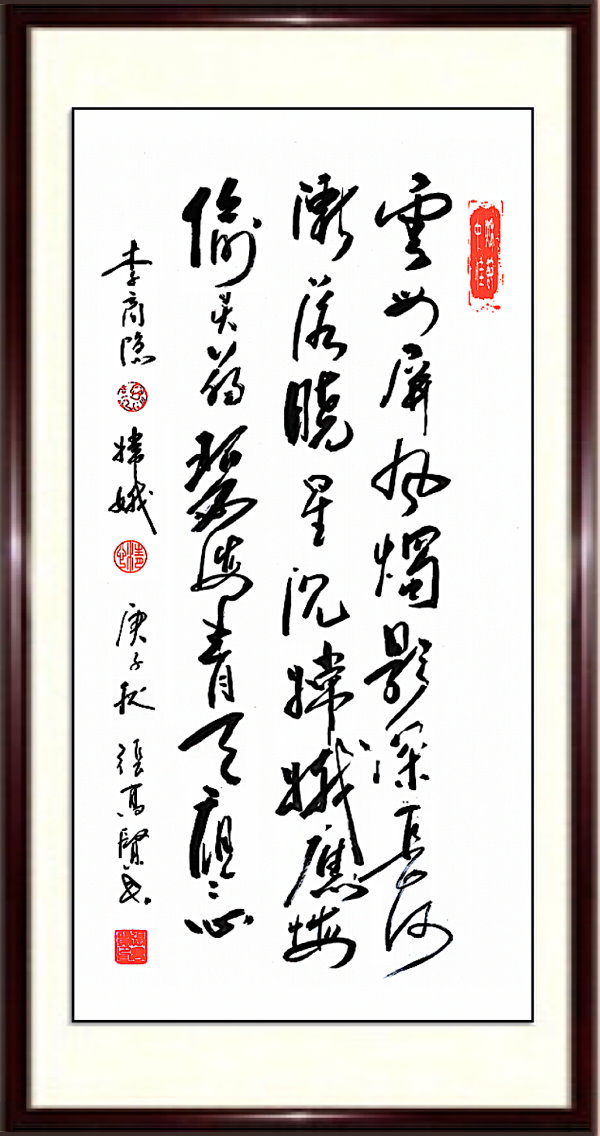 雲母屏風燭影深長河
漸落曉星沉嫦娥應悔
偷灵葯碧海青天夜々心
李商隐 嫦娥 庚子秋 張高賢书